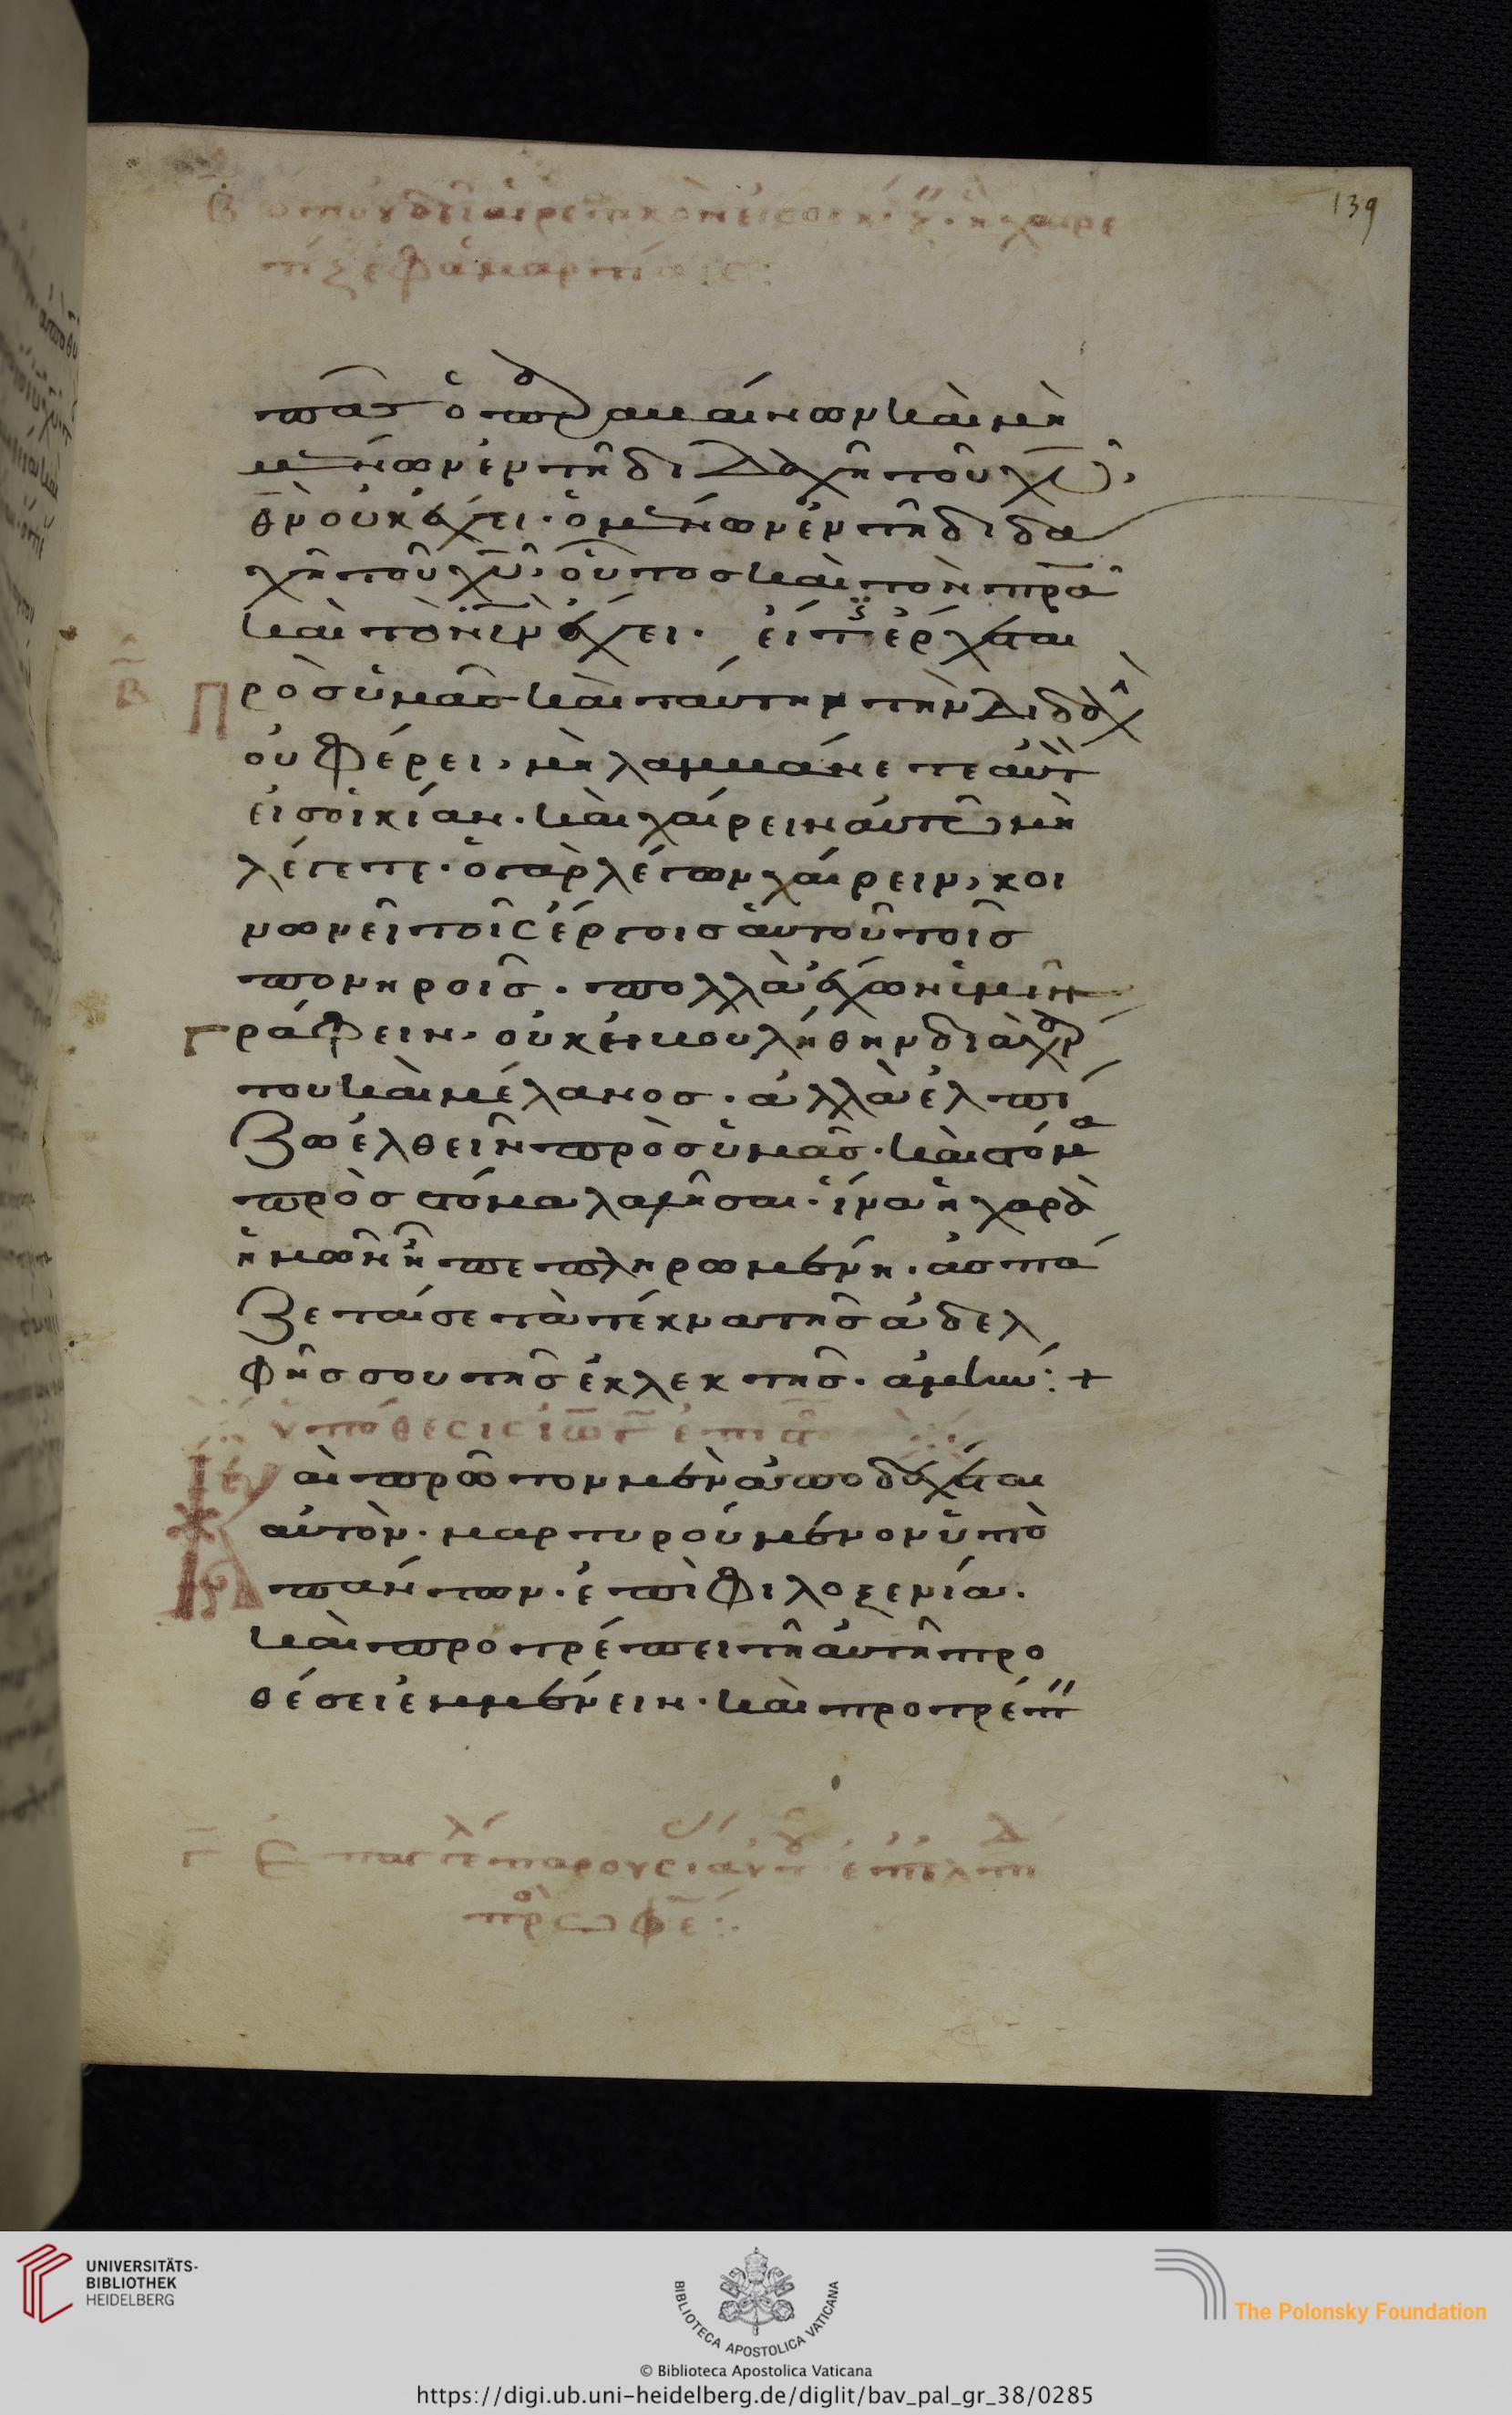 139
Β ὅτι οὐ δεῖ αἱρετικὸν εἰς οἰκ. ἢ χαιρε
τίζειν ἐφ ἁμαρτία
πᾶς ὁ παραβαίνων καὶ μὴ
μένων ἐν τῆ διδαχῆ τοῦ χυ,
θν οὐκ ἔχει· ὁ μένων ἐν τῆ διδα
χῆ τοῦ χυ, οὗτος καὶ τὸν πρα
καὶ τὸν υν ἔχει· εἴ τις ἔρχεται
Β
πρὸς ὑμᾶς καὶ ταύτην τὴν διδαχ
οὐ φέρει, μὴ λαμβάνετε αὐτ
εἰς οἰκίαν· καὶ χαίρειν αὐτῶ μὴ
λέγετε· ὁ γὰρ λέγων χαίρειν, κοι
νωνεῖ τοῖς ἔργοις αὐτοῦ τοῖς
πονηροῖς· πολλὰ ἔχων ὑμῖν
γράφειν, οὐκ ἠβουλήθην διὰ χάρ
του καὶ μέλανος· ἀλλὰ ἐλπί
ζω ἐλθεῖν πρὸς ὑμᾶς· καὶ στόμα
πρὸς στόμα λαλῆσαι· ἵνα ἡ χαρὰ
ἡμῶν ἦ πεπληρωμένη· ἀσπά
ζεταί σε τὰ τέκνα τῆς ἀδελ
φῆς σου τῆς ἐκλεκτῆς· ἀμήν: +
ὑπόθεσις ἰω Γ ἐπι
αι πρῶτον μὲν ἀποδέχεται
αὐτὸν· μαρτυρούμενον ὑπὸ
πάντων· ἐπὶ φιλοξενία·
καὶ προτρέπει τῆ αὐτῆ προ
θέσει ἐμμένειν· καὶ προτρέπ
Γ
UNIVERSITÄTS-
BIBLIOTHEK
HEIDELBERG
BIBLIOTECA APOSTOLICA VATICANA
The Polonsky Foundation
© Biblioteca Apostolica Vaticana
https://digi.ub.uni-heidelberg.de/diglit/bav_pal_gr_38/0285